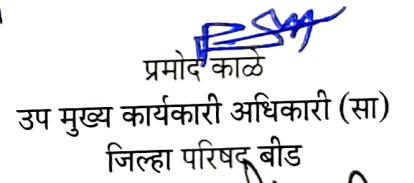 प्रमोद काळे
उप मुख्य कार्यकारी अधिकारी (सा)
जिल्हा परिषद बीड